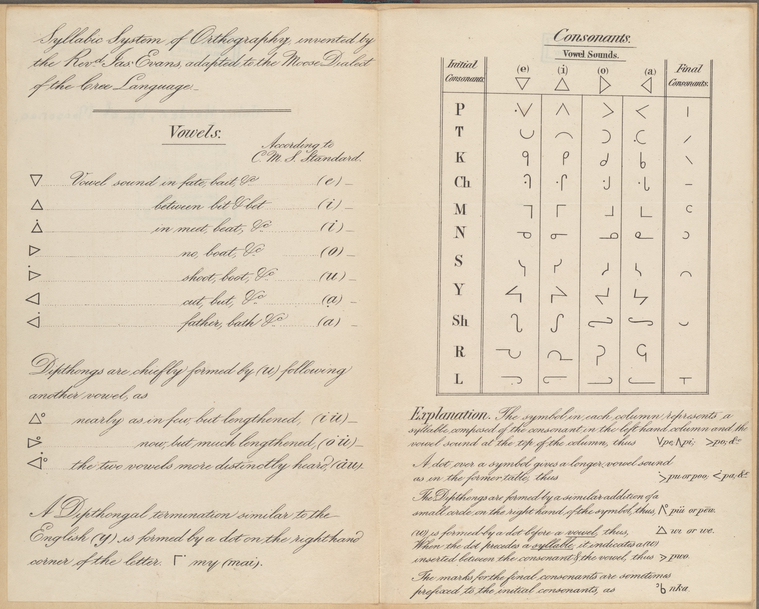 Syllabic System of Orthography, invented by
the Revd. Jas. Evans, adapted to the Moose Dialect
of the Cree Language.
Vowels.
According to
C. M. S. Standard.
ᐁ Vowel sound in fate, bait, &c (e)
ᐃ between bit & bet (i)
ᐄ in meet, beat, &c (i)
ᐅ no, boat, &c (o)
ᐆ shoot, boot, &c (u)
ᐊ cut, but, &c (a)
ᐋ father, bath &c (a)
Dipthongs are chiefly formed by (u) following
another vowel, as
nearly as in few, but lengthened, (iu)
now, but much lengthened, (ou)
the two vowels more distinctly heard, (au).
A Dipthongal termination similar to the
English (y) is formed by a dot on the right hand
corner of the letter. my (mai).
Consonants.
Vowel Sounds.
Initial Consonants (e) (i) (o) (a) Final Consonants
ᐁ ᐃ ᐅ ᐊ
P ᐯ ᐱ ᐳ ᐸ
T ᑌ ᑎ ᑐ ᑕ
K ᑫ ᑭ ᑯ ᑲ
Ch ᒉ ᒋ ᒍ ᒐ
M ᒣ ᒥ ᒧ ᒪ
N ᓀ ᓂ ᓄ ᓇ
S ᓭ ᓯ ᓱ ᓴ
Y ᔦ ᔨ ᔪ ᔭ
Sh ᔐ ᔑ ᔓ ᔕ
R
L
Explanation. The symbol in each column represents a
syllable composed of the consonant in the left hand column and the
vowel sound at the top of the column, thus ᐯ pe, ᐱ pi; ᐳ po; &c
A dot over a symbol gives a longer vowel sound
as in the former table, thus pu or poo, pa, &c
The Dipthongs are formed by a similar addition of a
small circle on the right hand of the symbol, thus, piu or pew.
(w) is formed by a dot before a vowel, thus, wi or we.
When the dot precedes a syllable it indicates a (w)
inserted between the consonant & the vowel, thus pwo.
The marks for the final consonants are sometimes
prefixed to the initial consonants, as nka.